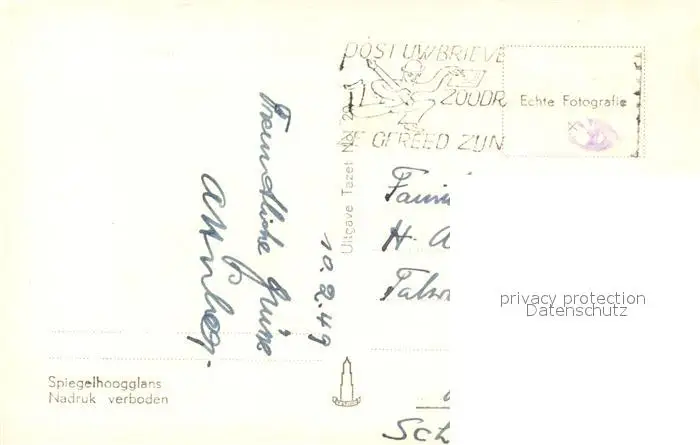 POST UW BRIEVE
ZOODR
E GEREED ZIJN
Echte Fotografie
Uitgave Tazet No. 20
Freundliche Grüsse
10.2.49
Fami
H. A
privacy protection
Datenschutz
Spiegelhoogglans
Nadruk verboden
Sch